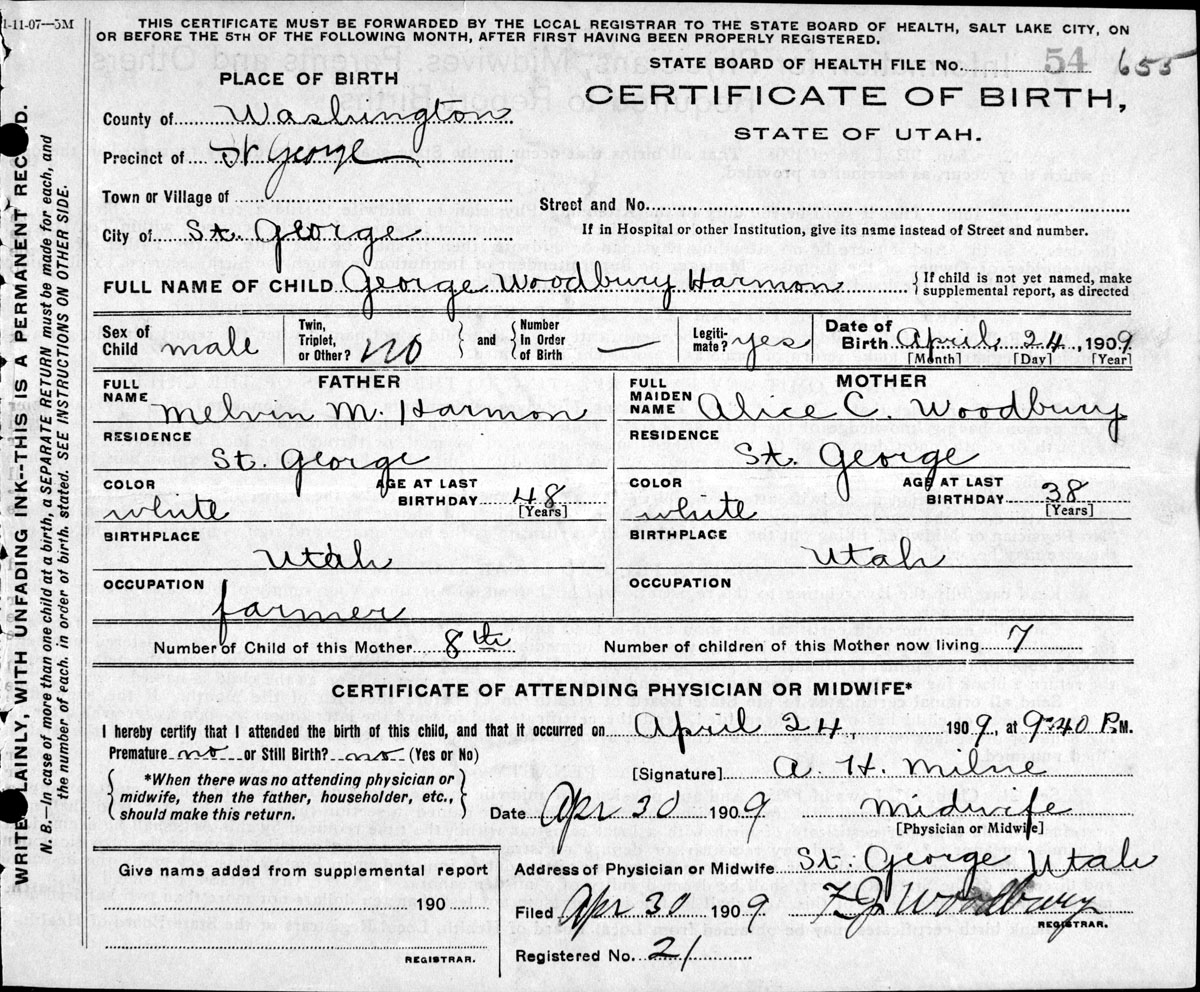 1-11-07—5M
THIS CERTIFICATE MUST BE FORWARDED BY THE LOCAL REGISTRAR TO THE STATE BOARD OF HEALTH, SALT LAKE CITY, ON
OR BEFORE THE 5TH OF THE FOLLOWING MONTH, AFTER FIRST HAVING BEEN PROPERLY REGISTERED.
STATE BOARD OF HEALTH FILE NO. 54 655
CERTIFICATE OF BIRTH,
STATE OF UTAH.
PLACE OF BIRTH
County of Washington
Precinct of St. George
Town or Village of
City of St. George
Street and No.
If in Hospital or other Institution, give its name instead of Street and number.
FULL NAME OF CHILD George Woodbury Harmon { If child is not yet named, make
supplemental report, as directed
Sex of
Child male
Twin,
Triplet,
or Other? no
} and {
Number
In Order
of Birth —
Legiti-
mate? yes
Date of
Birth April, 24, 1909
[Month] [Day] [Year]
FATHER
FULL
NAME Melvin M. Harmon
RESIDENCE
St. George
COLOR
white
AGE AT LAST
BIRTHDAY 48
[Years]
BIRTHPLACE
Utah
OCCUPATION
farmer
MOTHER
FULL
MAIDEN
NAME Alice C. Woodbury
RESIDENCE
St. George
COLOR
white
AGE AT LAST
BIRTHDAY 38
[Years]
BIRTHPLACE
Utah
OCCUPATION
Number of Child of this Mother 8th Number of children of this Mother now living 7
CERTIFICATE OF ATTENDING PHYSICIAN OR MIDWIFE*
I hereby certify that I attended the birth of this child, and that it occurred on April 24, 1909, at 9:40 P.M.
Premature no or Still Birth? no (Yes or No)
{ *When there was no attending physician or
midwife, then the father, householder, etc.,
should make this return. }
[Signature] A. H. Milne
Date Apr 30 1909 Midwife
[Physician or Midwife]
Address of Physician or Midwife St. George Utah
Filed Apr 30 1909 F. G. Woodbury
REGISTRAR.
Registered No. 21
Give name added from supplemental report
190
REGISTRAR.
WRITE PLAINLY, WITH UNFADING INK--THIS IS A PERMANENT RECORD.
N. B.—In case of more than one child at a birth, a SEPARATE RETURN must be made for each, and
the number of each, in order of birth, stated. SEE INSTRUCTIONS ON OTHER SIDE.